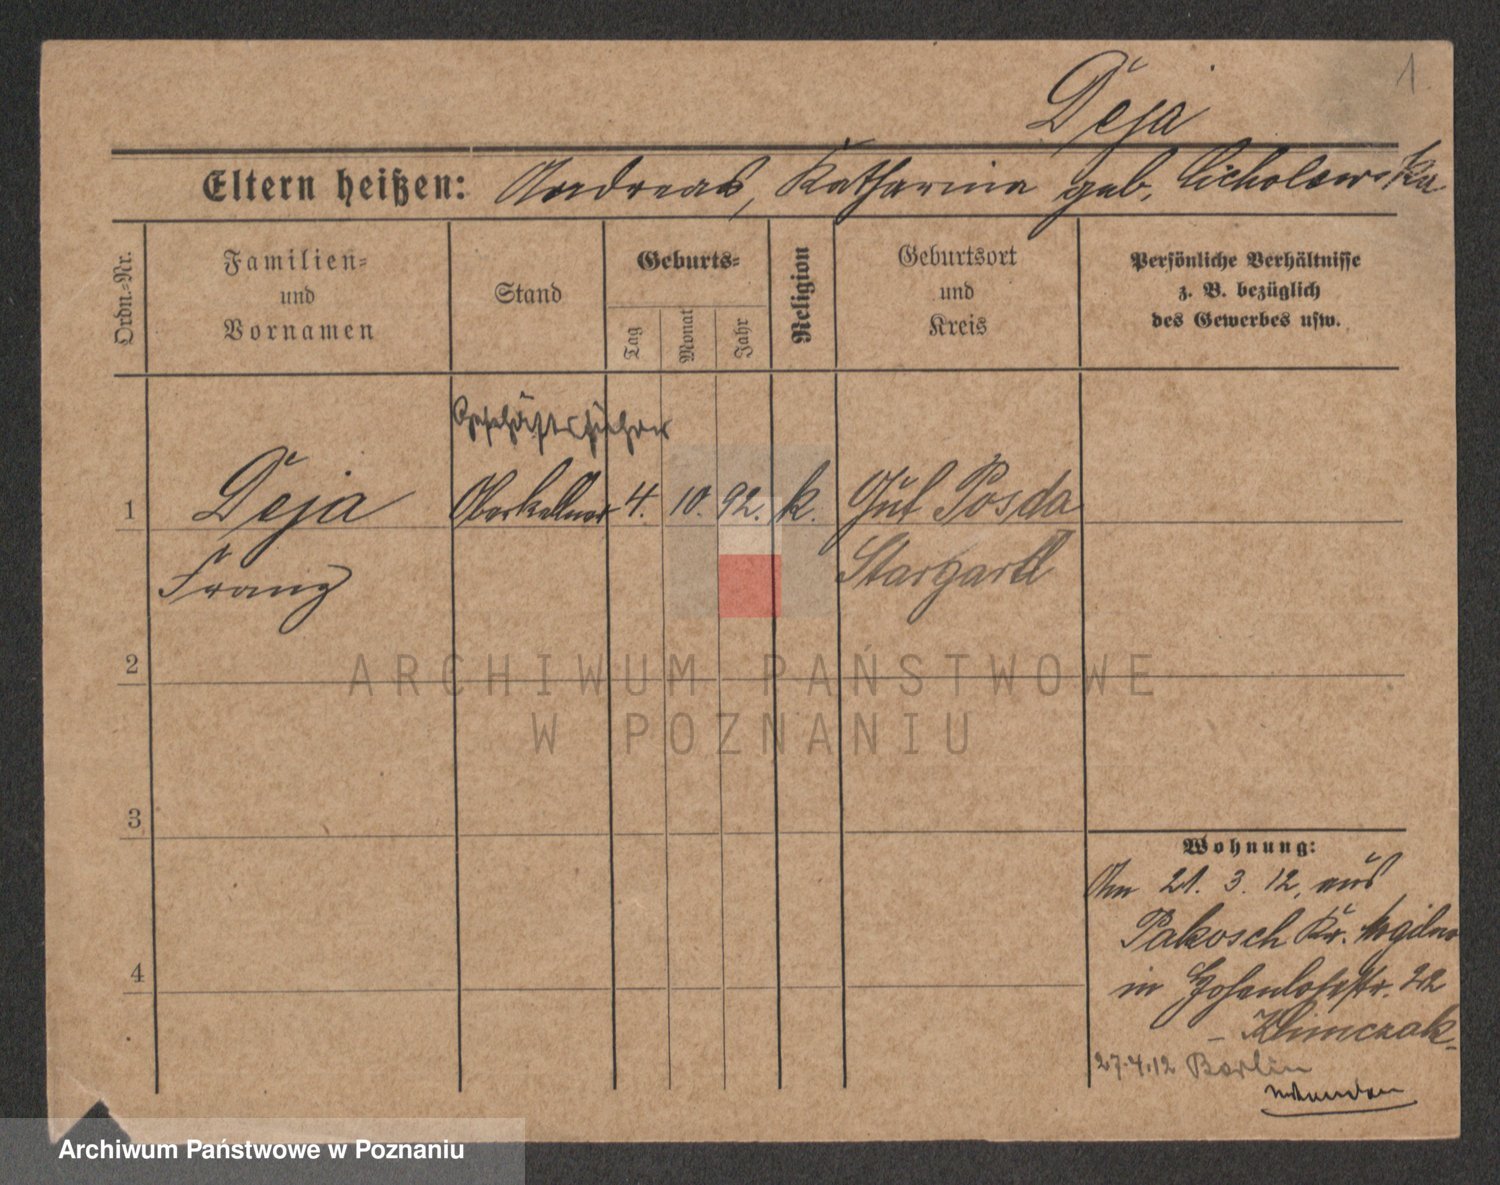 1.
Deja
Eltern heißen: Andreas, Katharina geb. Cicholewska
Ordn.-Nr.
Familien-
und
Vornamen
Stand
Geburts-
Tag
Monat
Jahr
Religion
Geburtsort
und
Kreis
Persönliche Verhältnisse
z. B. bezüglich
des Gewerbes usw.
Geschäftsführer
1 Deja Oberkellner 4. 10. 92. k. Gut Posda
Franz Stargard
2
ARCHIWUM PAŃSTWOWE
W POZNANIU
3
Wohnung:
Am 21. 3. 12, aus
Pakosch Kr. Mogilno
4
in Hohenlohestr. 22
- Klimczak.
27.4.12 Berlin
Archiwum Państwowe w Poznaniu